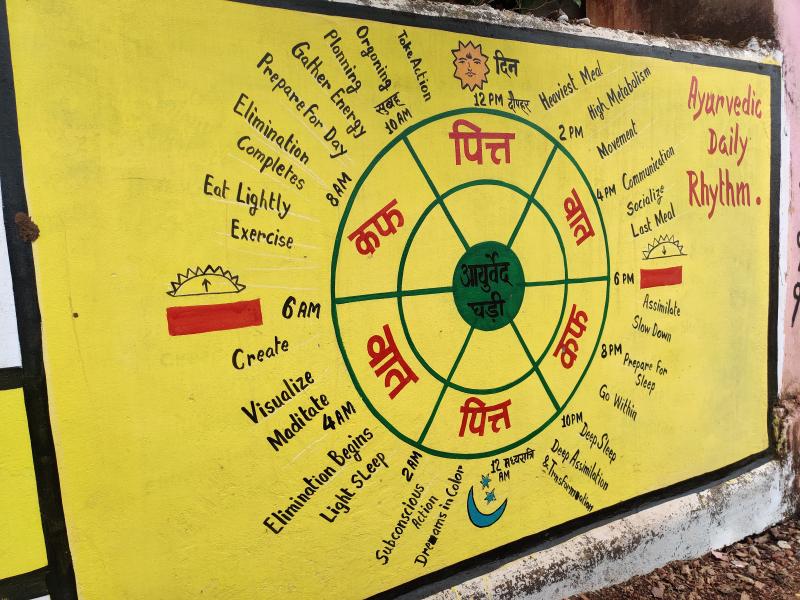 Ayurvedic
Daily
Rhythm.
दिन
12 PM दोपहर
Heaviest Meal
High Metabolism
2 PM
Movement
4 PM
Communication
Socialize
Last Meal
6 PM
Assimilate
Slow Down
8 PM
Prepare for
Sleep
Go Within
10 PM
Deep Sleep
Deep Assimilation
& Transformation
12 मध्यरात्रि
AM
Dreams in Color
Subconscious
Action
2 AM
Light SLeep
Elimination Begins
4 AM
Maditate
Visualize
Create
6 AM
Exercise
Eat Lightly
Elimination
Completes
8 AM
Prepare for Day
Gather Energy
Planning
Orgoning
सुबह
10 AM
Take Action
पित्त
वात
कफ
पित्त
वात
कफ
आयुर्वेद
घड़ी